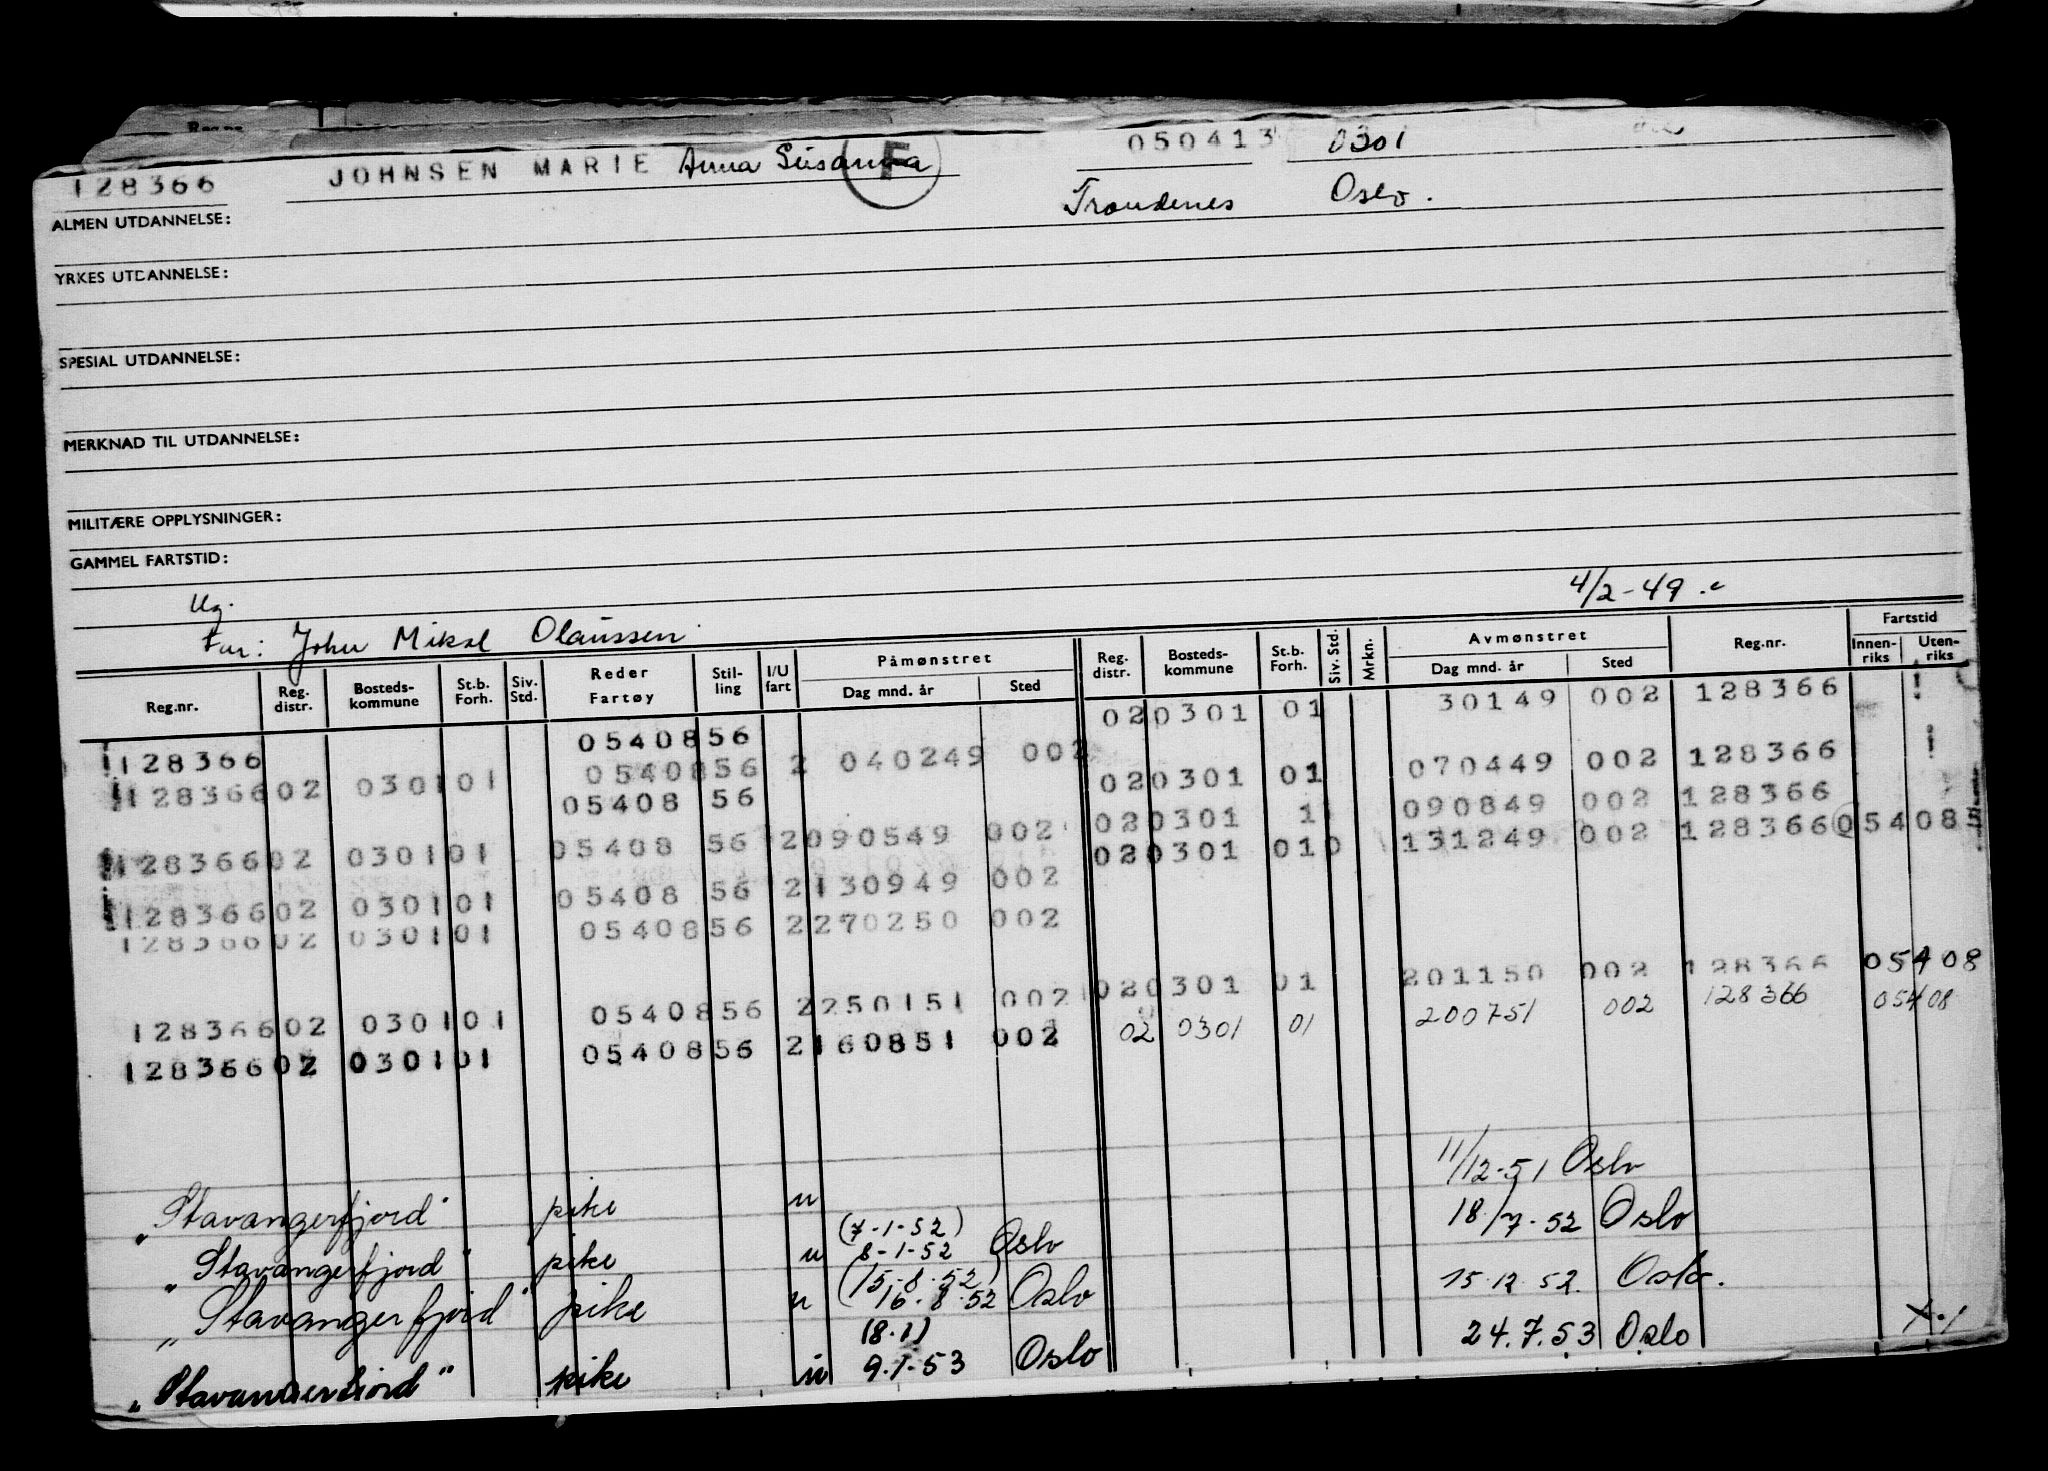 128366 JOHNSEN MARIE Anna Susanna F 050413 0301
Trondenes Oslo.
ALMEN UTDANNELSE:
YRKES UTDANNELSE:
SPESIAL UTDANNELSE:
MERKNAD TIL UTDANNELSE:
MILITÆRE OPPLYSNINGER:
GAMMEL FARTSTID:
Ug. 4/2-49.
Far: John Mikal Olaussen
Reg.nr. Reg. distr. Bosteds-kommune St.b. Forh. Siv. Std. Reder Fartøy Stil-ling I/U fart Påmønstret Dag mnd. år Sted Reg. distr. Bosteds-kommune St.b. Forh. Siv. Std. Mrkn. Avmønstret Dag mnd. år Sted Reg.nr. Fartstid Innen-riks Uten-riks
128366 05408 56 02 0301 01 30149 002 128366
128366 02 0301 01 05408 56 2 040249 002 02 0301 01 070449 002 128366
05408 56 02 0301 1 090849 002 128366
128366 02 0301 01 05408 56 2 090549 002 02 0301 01 0 131249 002 128366 05408
128366 02 0301 01 05408 56 2 130949 002
128366 02 0301 01 05408 56 2 270250 002
02 0301 01 201150 002 128366 05408
128366 02 0301 01 05408 56 2 250151 002 02 0301 01 200751 002 128366 05408
128366 02 0301 01 05408 56 2 160851 002
"Stavangerfjord" pike u 11/12-51 Oslo
"Stavangerfjord" pike u (7-1-52) 8-1-52 Oslo 18/7-52 Oslo
"Stavangerfjord" pike u (15-8-52) 16-8-52 Oslo 15.12.52. Oslo.
"Stavangerfjord" pike u (8.1) 9.1-53 Oslo 24.7.53 Oslo